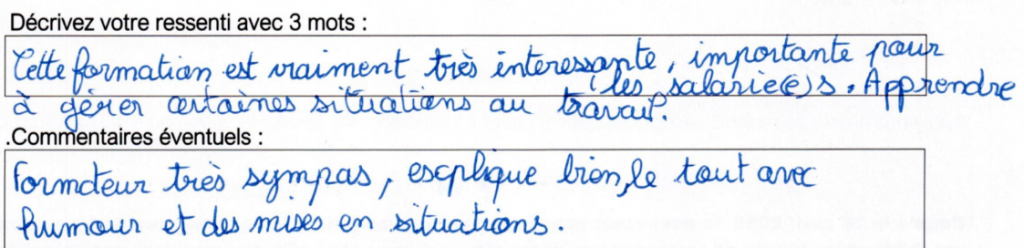 Décrivez votre ressenti avec 3 mots :
Cette formation est vraiment très interessante, importante pour
(les salarié(e)s. Apprendre
à gérer certaines situations au travail.
.Commentaires éventuels :
Formateur très sympas, esplique bien, le tout avec
humour et des mises en situations.